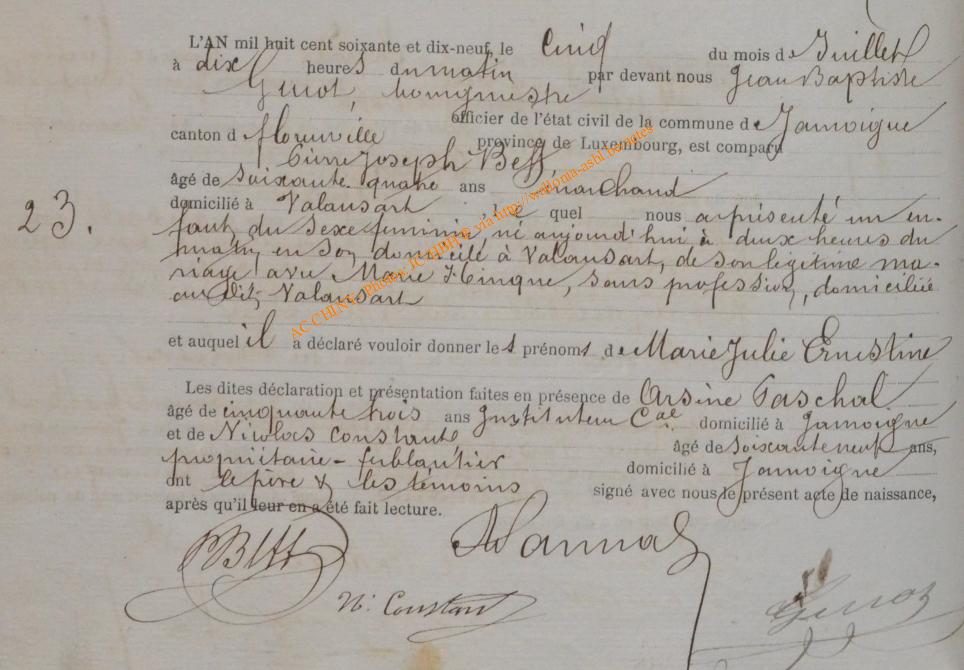 L'AN mil huit cent soixante et dix-neuf, le Cinq du mois de Juillet
à dix heures du matin par devant nous Jean Baptiste
bourgmestre
officier de l'état civil de la commune de Jamoigne
canton d florenville province de Luxembourg, est comparu
Joseph Beff,
âgé de soixante quatre ans marchand
domicilié à Valansart, lequel nous a présenté un en-
23. fant du sexe feminin né aujourd'hui à deux heures du
matin en son domicilé à Valansart, de son légitime ma-
riage avec Marie, sans profession, domiciliée
au dit Valansart
et auquel il a déclaré vouloir donner les prénoms de Marie Julie Ernestine
Les dites déclaration et présentation faites en présence de Arsène
âgé de cinquante trois ans Instituteur Cal domicilié à Jamoigne
et de Nicolas Constant âgé de soixante neuf ans,
propriétaire - ferblantier domicilié à Jamoigne
ont le père & les témoins signé avec nous le présent acte de naissance,
après qu'il leur en a été fait lecture.
N. Constant
AC CHINY - Photos via http://wallonia-asbl.be/notes